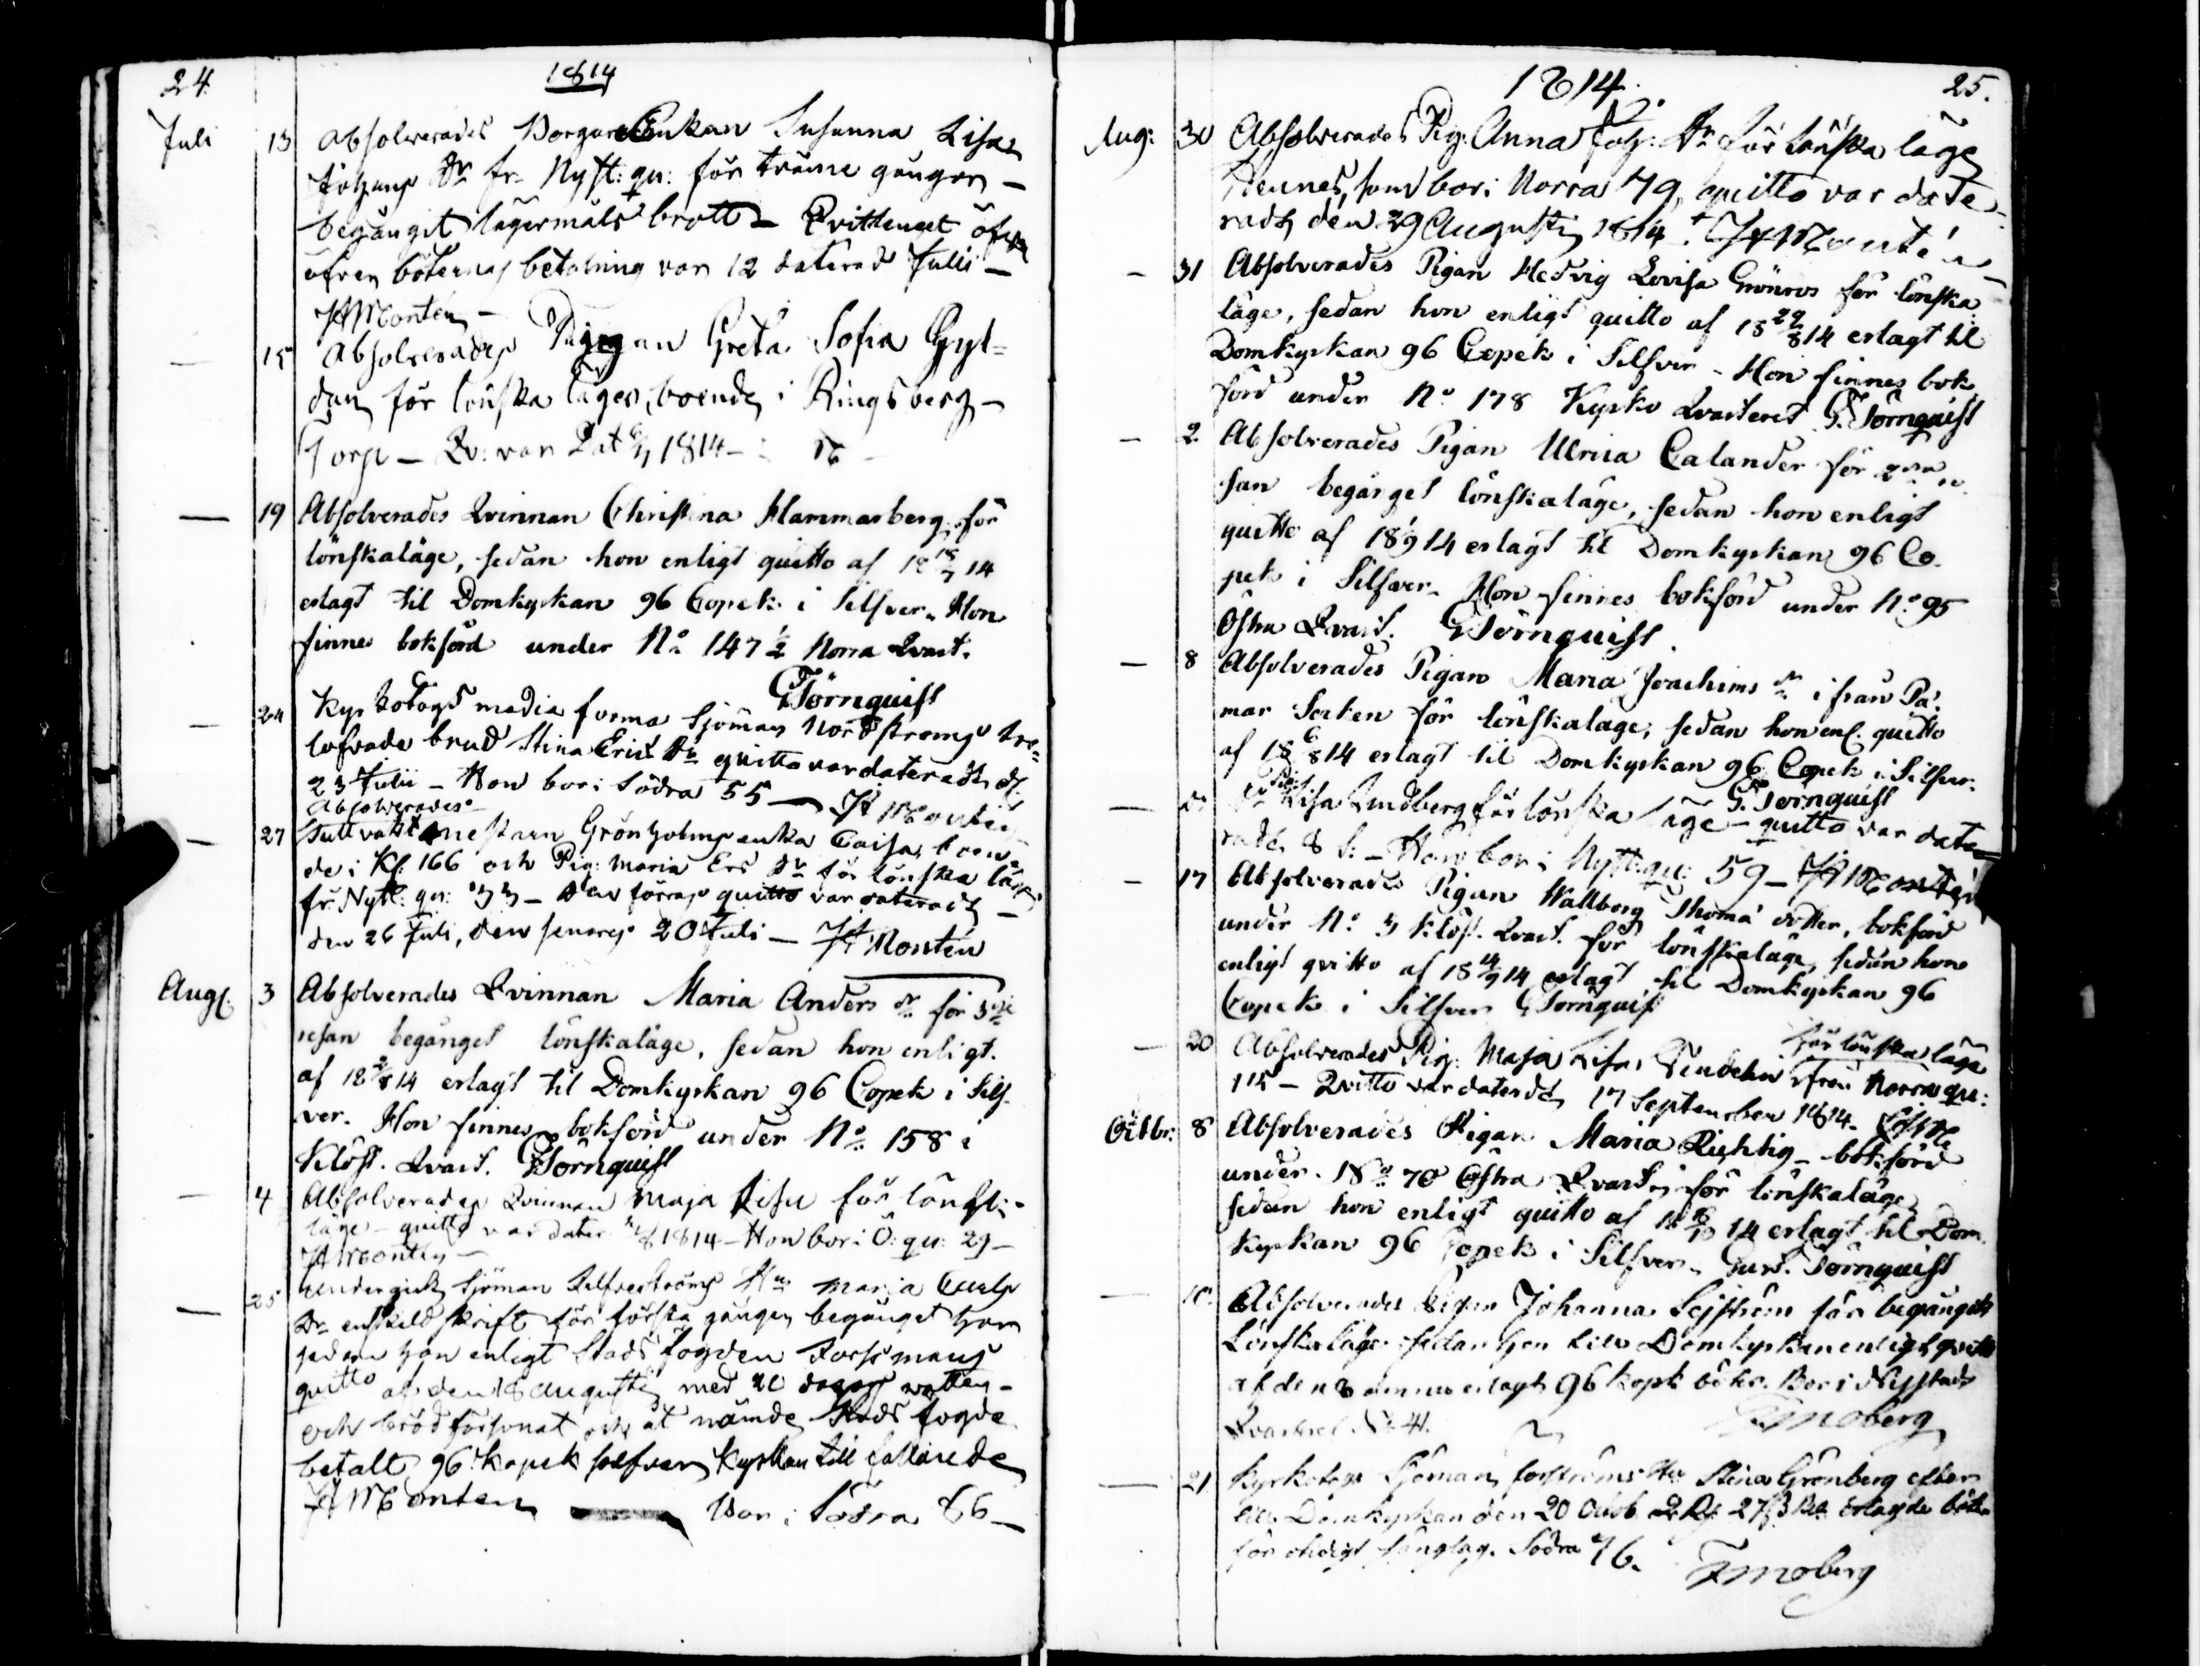 24.
1814
Juli 13 Absolverades Borgare Enkan Susanna Lisa
Johans Dr fr. Nyst: qu: för träine gången –
begånget lägermåls brott – Qvittenset öfver
öfven böternas betalning var 12 daterad Julii –
JAMontén –
— 15 Absolverades Pigan Greta Sofia Gyl=
dén för lönska läger, boende i Ringsberg –
Torp – Qv: var Dat 1814 –
— 19 Absolverades Qvinnan Christina Hammarberg för
lönskaläge, sedan hon enligt quitto af 18 18/7 14
erlagt til Domkyrkan 96 Copek i Silfver. Hon
finnes bokförd under No 147 1/2 Norra Qvart.
GTörnquist
— 24 Kyrkotogs media forma Sjöman Nordströms tro=
lofvade brud Stina Erics Dr quitto var dateradt d.
23 Julii – Hon bor i Södra 55 — JA Montén
Absolverades
— 27 Tullvakt Grönholms enka Caisa, boen=
de i Kl: 166 och Pig: Maria Ers Dr för lönska läge
fr. Nytt: qu: 33 – Den förras quitto var dateradt –
den 26 Juli, den senares 20 Juli – JA Montén
Aug. 3 Absolverades Qvinnan Maria Anders dr för 3die
resan begånget lönskaläge, sedan hon enligt.
af 18 2/8 14 erlagt til Domkyrkan 96 Copek i Silf-
ver. Hon finnes bokförd under No 158 i
Klöst. Qvart. GTörnquist
— 4 Absolverades Qvinnan Maja Lisa för lönsk:
läge – quitto var dater 1814 – Hon bor i Ö: qu: 29 –
JAMontén –
— 25 Undergick Sjöman Silfverströms Hu Maria Carls
Dr enskild skrift för första gången begånget hor
sedan hon enligt Stads fogden Forssmans
quitto af den 18 Augusti med dagars vatten-
och bröd försonat och åt nämde Stads fogde
betalt 96 kopek silfver Kyrkan tillfallande
JAMontén Bor i Södra 86 –
1814.
25.
Aug: 30 Absolverades Pig: Anna Joh: Dr för lönska läge
Hennes, som bor i Norra 79, quitto var date-
radt den 29 Augusti 1814. JAMontén
— 31 Absolverades Pigan Hedvig Lovisa Grönros för lönska
läge, sedan hon enligt quitto af 18 29/8 14 erlagt til
Domkyrkan 96 Copek i Silfver – Hon finnes bok
förd under No 178 Kyrko Qvarteret G. Törnquist
— 2 Absolverades Pigan Ulrica Calander för 2dra re
san begånget lönskaläge, sedan hon enligt
quitto af 18 1/9 14 erlagt til Domkyrkan 96 Co-
pek i Silfver. Hon finnes bokförd under No 95
Östra Qvart. GTörnquist
— 8 Absolverades Pigan Maria Joachims dr ifrån Pä-
mar Socken för lönskaläge, sedan hon enl. quitto
af 18 6/8 14 erlagt til Domkyrkan 96 Copek i Silfver.
G. Törnquist
— Lisa Lindberg för lönska läge – quitto var date=
radt 8 – Hon bor i Nytt: qu: 59 – JAMontén
— 17 Absolverades Pigan Wallborg Thomædotter, bokförd
under No 3 Klöst. Qvart. för lönskaläge, sedan hon
enligt qvitto af 18 14/9 14 erlagt til Domkyrkan 96
Copek i Silfver GTörnquist
för lönska läge
— 20 Absolverades Pig: Maja Lisa Tendelin ifrån Norra qu:
115 – Qvitto var daterat 17 September 1814.
Octbr: 8 Absolverades Pigan Maria Richtig – bokförd
under No 70 Östra Qvart. för lönskaläge,
sedan hon enligt quitto af 18 14 erlagt til Dom
kyrkan 96 Copek i Silfver. Gust. Törnquist
— Absolverades Pigan Johanna Sejström för begånget
Lönskaläge sedan hon till Domkyrkan enligt qvitto
af den erlagt 96 Kopek böter. Bor i Nystads
Qvarteret No 41. Fr Moberg
— 21 Kyrkotogs Sjöman Forströms Hu Stina Grönberg efter
till Domkyrkan den 20 Octob 2 Rd 27 ß erlagde böter
för otidigt sänglag. Södra 76. Fr Moberg